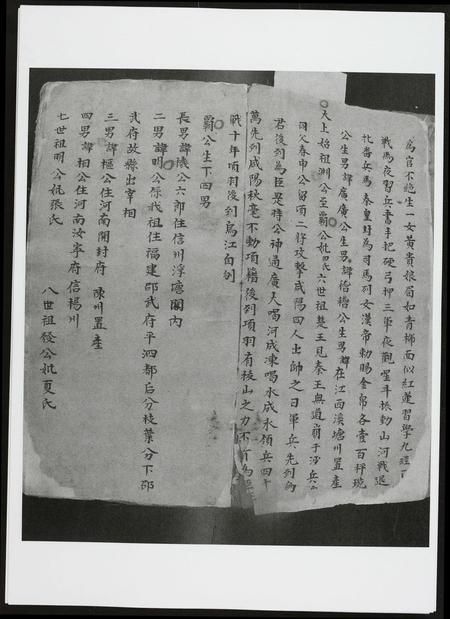 為官不絕生一女黃貴娘眉如青柳面似紅蓮習學九經
戰馬夜習兵書手把硬弓押三軍夜觀星斗振動山河戰退
北番兵馬秦皇封為司馬列女漢帝勅賜金帛各壹百秤
公生男諱廣廣公生男諱稽稽公生男諱在江西溪塘州置產
天上始祖淵公至霸公妣四氏六世祖楚王見秦王無道崩于沙
國父春申公留項二將攻擊咸陽四人出帥之日軍兵先到為
君後到為臣是時公神通廣大喝河成凍喝水成冰領兵四十
萬先到咸陽秋毫不動項籍後到項羽有拔山之力不
戰十年項羽後到烏江自刎
霸公生下四男
長男諱公六郎住信州浮塘關內
二男諱明公係我祖住福建邵武府平泗都后分枝葉分下邵
武府故縣出宰相
三男諱樞公住河南開封府陳州置產
四男諱相公住河南汝寧府信楊州
七世祖明公妣張氏
八世祖發公妣夏氏